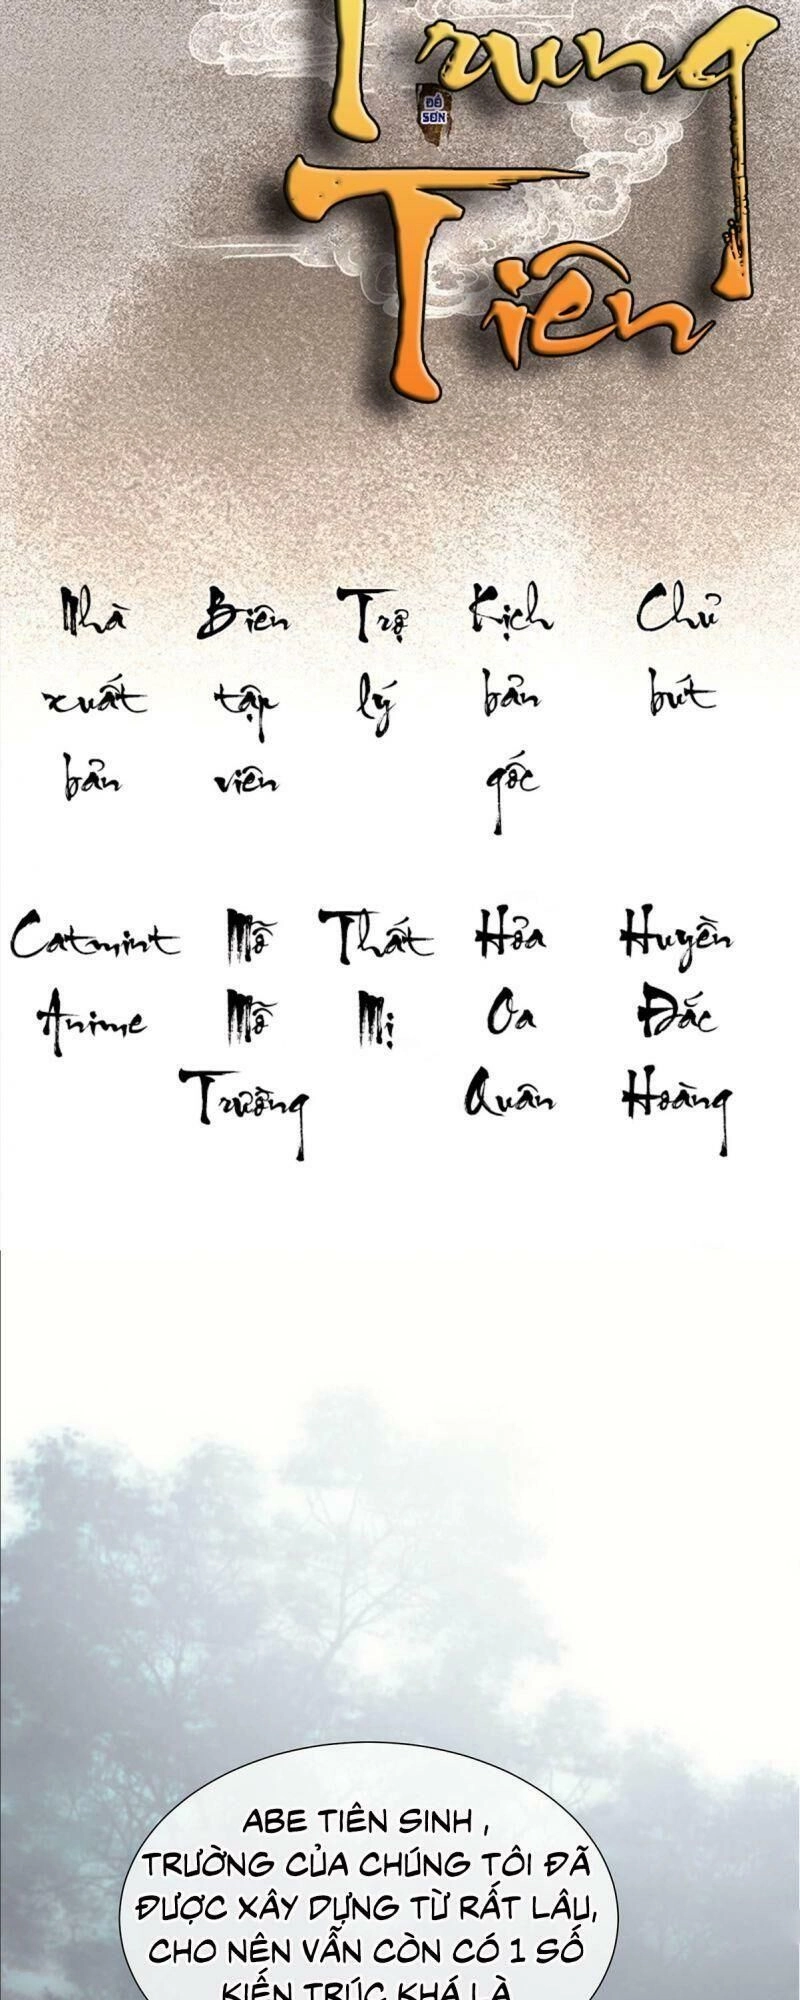 Trung
ĐẾ
SƠN
Tiên
Nhà Biên Trợ Kịch Chủ
xuất tập lý bản bút
bản viên gốc
Catmint Mỡ Thất Hỏa Huyền
Anime Mỡ Mị Oa Đắc
Trường Quân Hoàng
ABE TIÊN SINH ,
TRƯỜNG CỦA CHÚNG TÔI ĐÃ
ĐƯỢC XÂY DỰNG TỪ RẤT LÂU,
CHO NÊN VẪN CÒN CÓ 1 SỐ
KIẾN TRÚC KHÁ LÀ